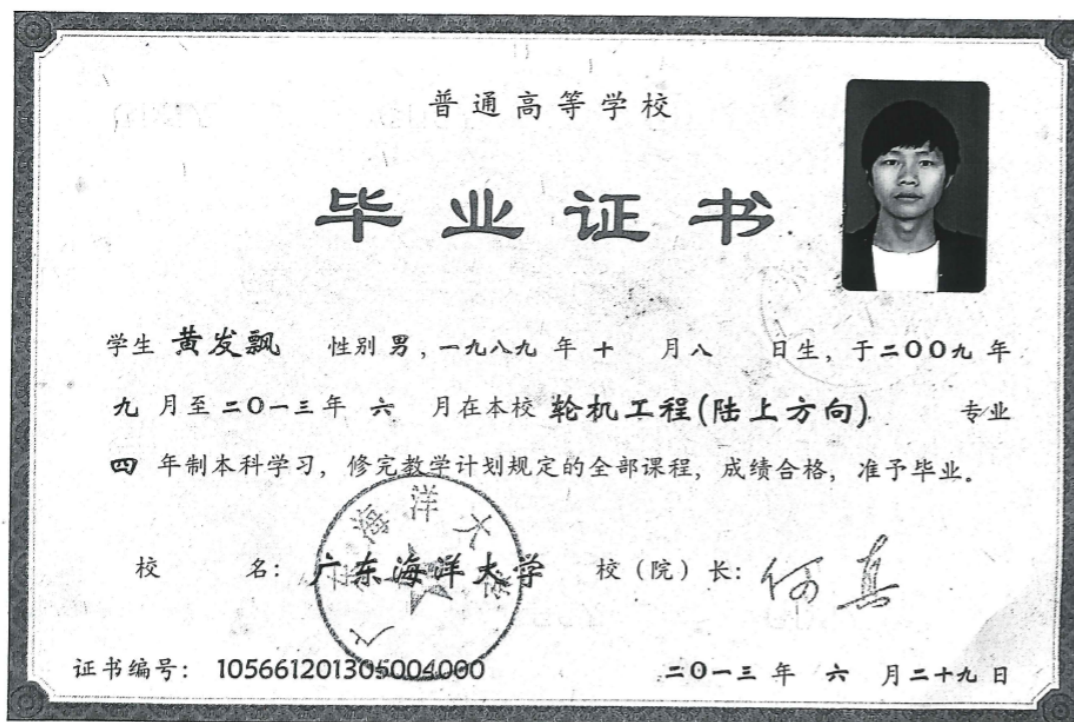 普通高等学校
毕业证书
学生 黄发飘 性别 男，一九八九 年 十 月 八 日生，于 二〇〇九 年
九 月至 二〇一三 年 六 月在本校 轮机工程(陆上方向) 专业
四 年制本科学习，修完教学计划规定的全部课程，成绩合格，准予毕业。
校 名：广东海洋大学 校（院）长：何真
广东海洋大学
证书编号：105661201305004000 二〇一三 年 六 月 二十九 日